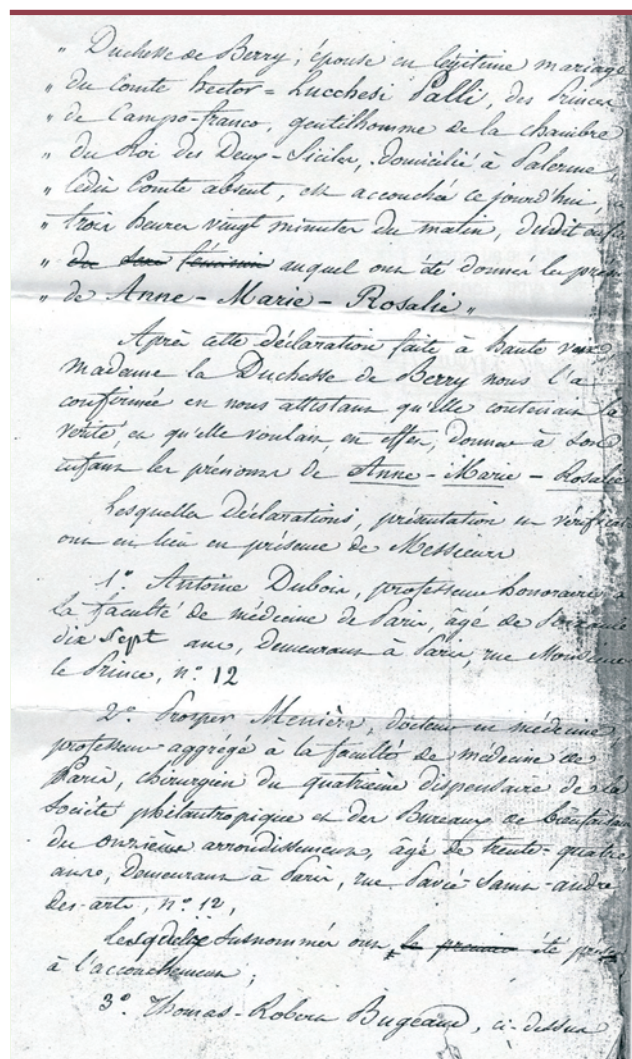 " Duchesse de Berry, épouse en légitime mariage
" du Comte hector = Lucchesi Palli, des Princes
" de Campo-franco, gentilhomme de la chambre
" du Roi des Deux-Siciles, domicilié à Palerme,
" ledit Comte absent, est accouchée ce jourd'hui, à
" trois heures vingt minutes du matin, dudit enfant
" du sexe féminin auquel ont été donnés les prénoms
" de Anne-Marie-Rosalie "
Après cette déclaration faite à haute voix
madame la Duchesse de Berry nous l'a
confirmée en nous attestant qu'elle contenait la
vérité, et qu'elle voulait, en effet, donner à son
enfant les prénoms de Anne-Marie-Rosalie
Lesquelles déclarations, présentation et vérification
ont eu lieu en présence de Messieurs
1° Antoine Dubois, professeur honoraire à
la faculté de médecine de Paris, âgé de soixante
dix sept ans, demeurant à Paris, rue Monsieur
le Prince, n° 12
2° Prosper Menière, docteur en médecine,
professeur aggrégé à la faculté de médecine de
Paris, chirurgien du quatrième dispensaire de la
Société philantropique et des Bureaux de bienfaisance
du onzième arrondissement, âgé de trente-quatre
ans, demeurant à Paris, rue Pavée-Saint-andré
des-arts, n° 12,
Lesquels susnommés ont le premier été présens
à l'accouchement ;
3° Thomas-Robert Bugeaud, ci-dessus